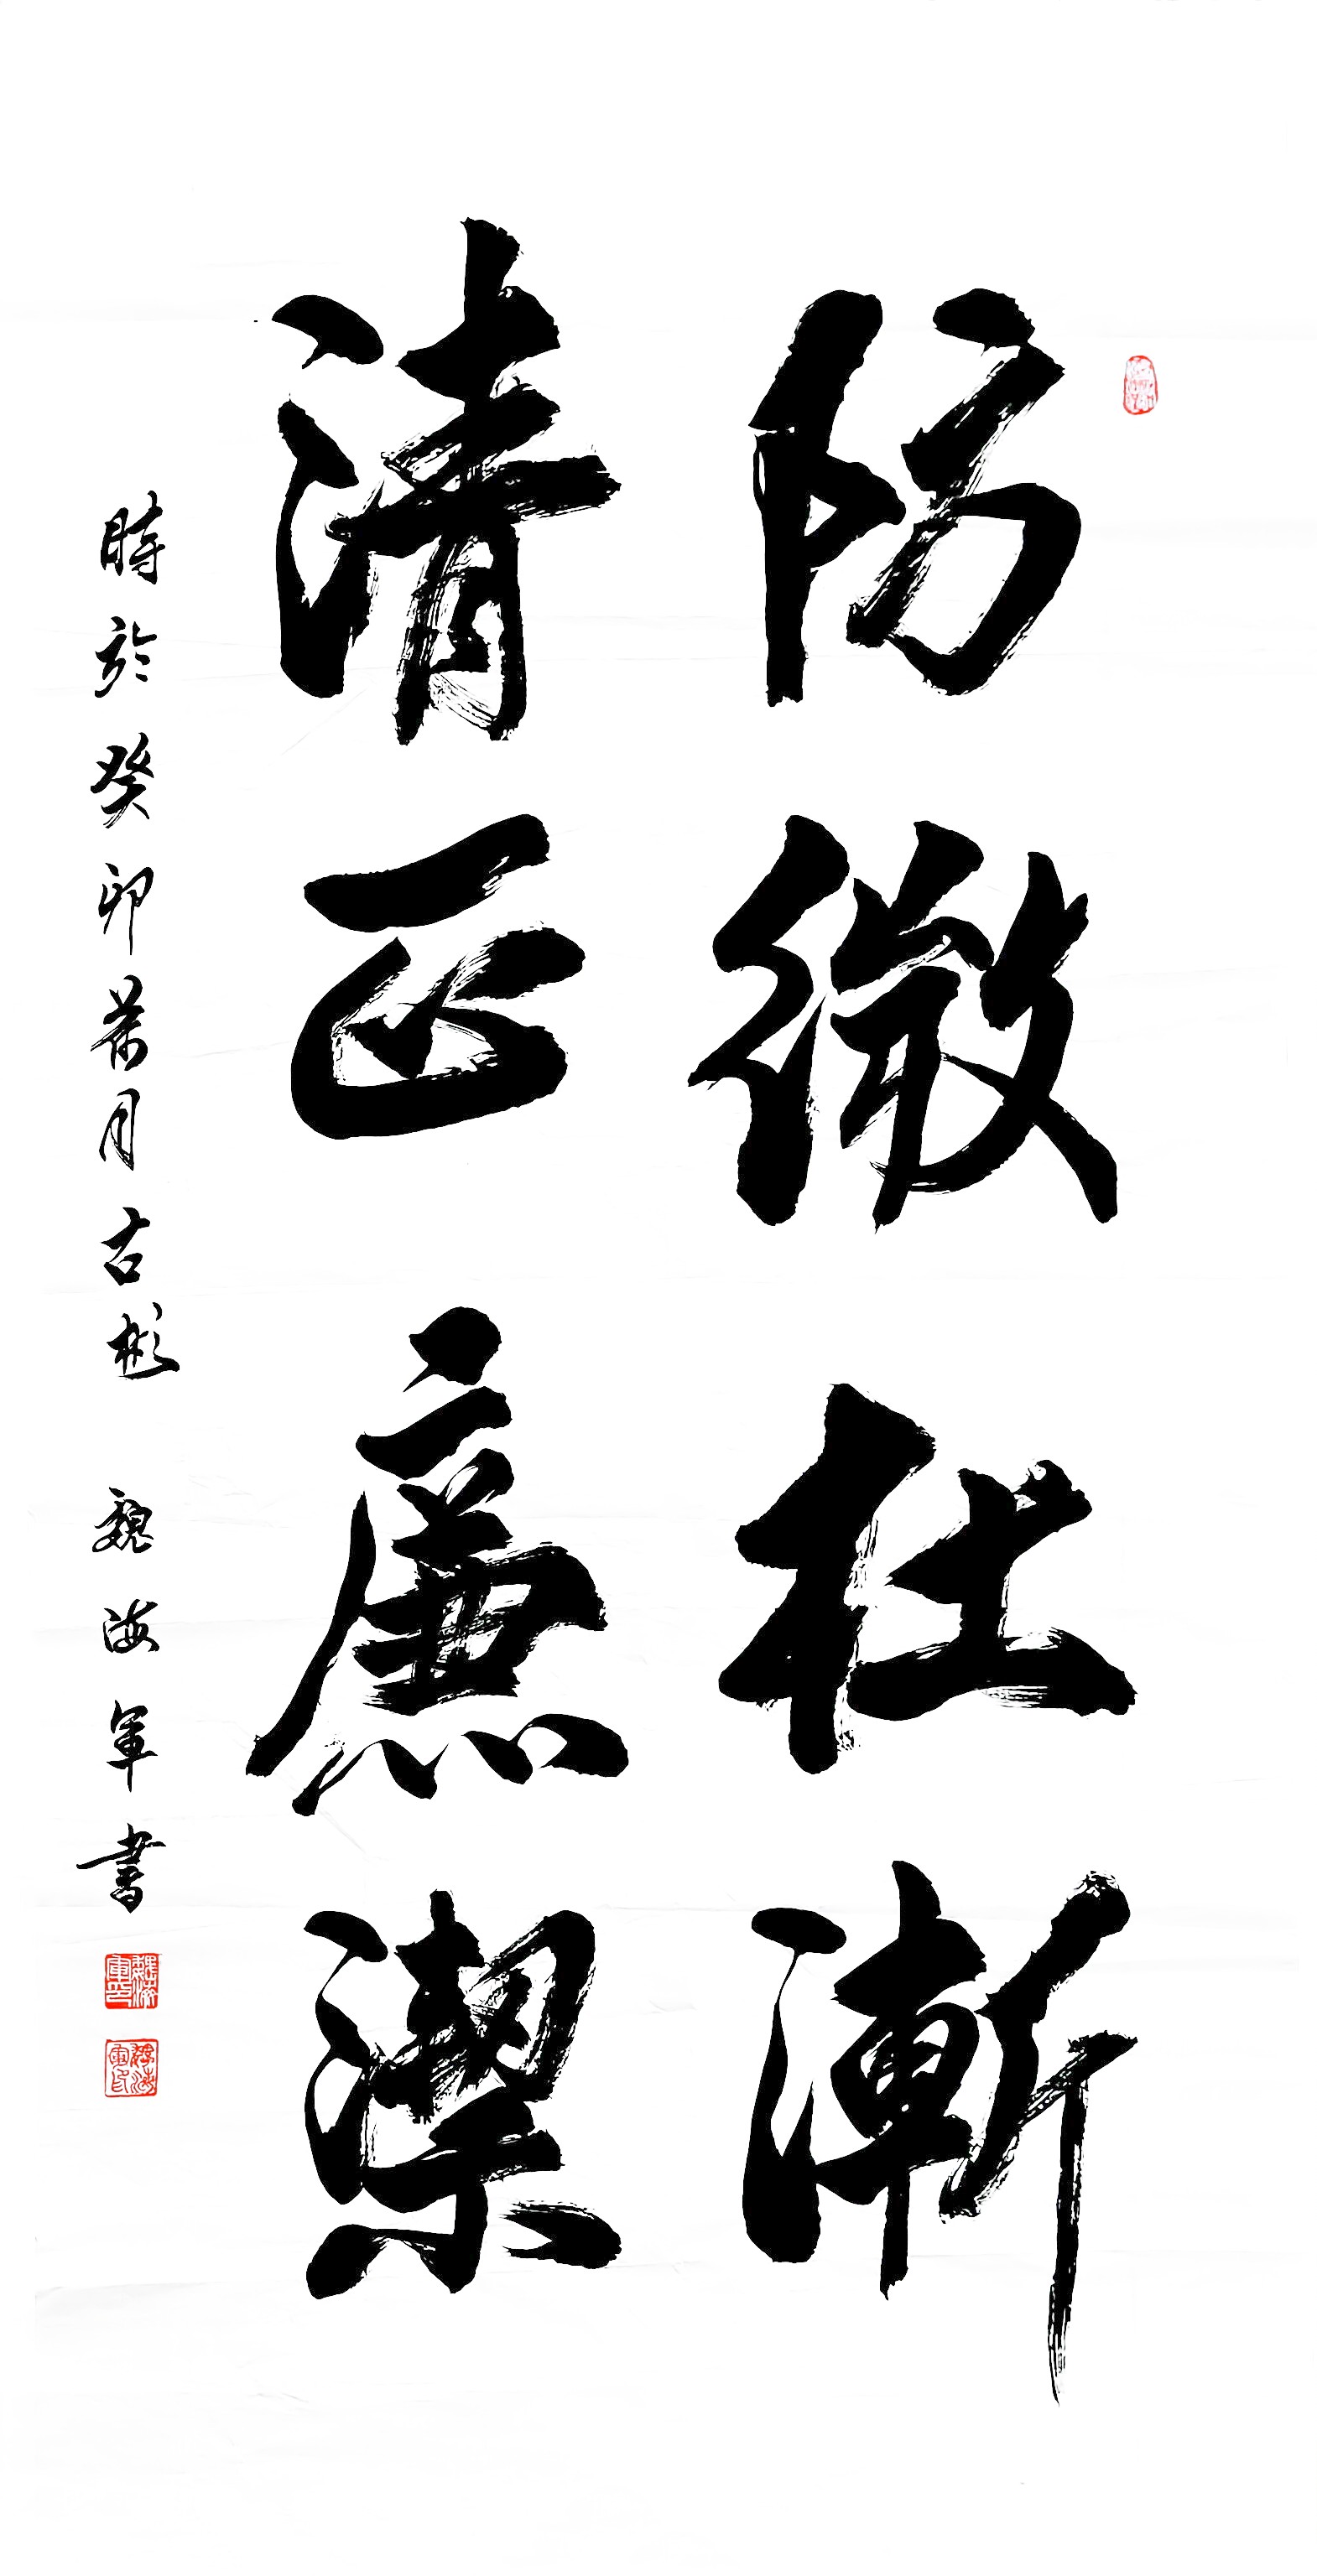 防微杜漸
清正廉潔
時於癸卯荷月古彬 魏海軍書